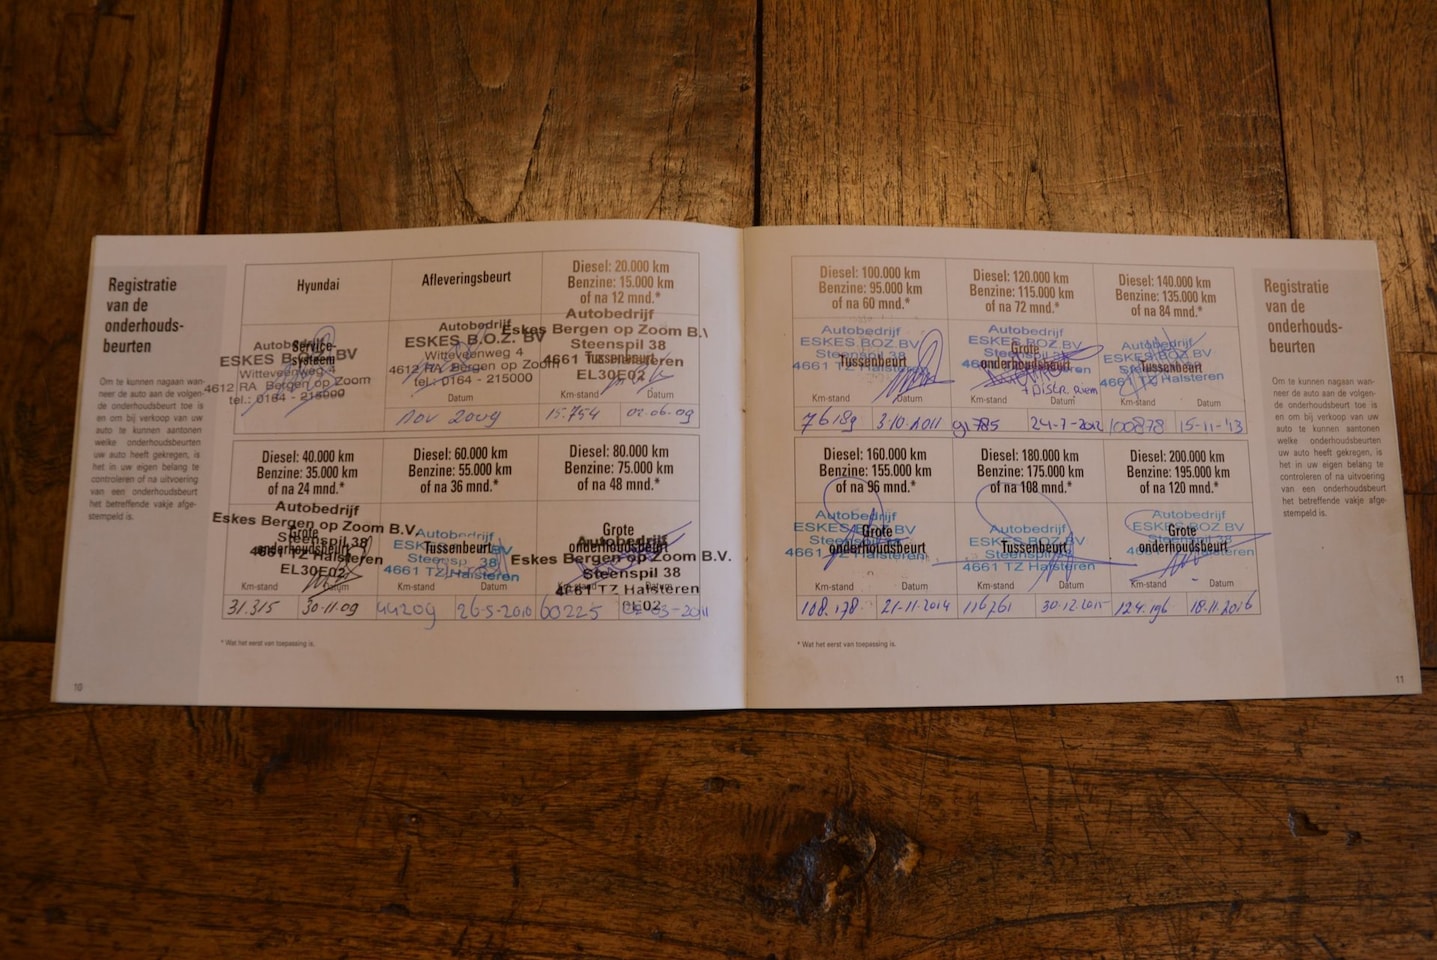 Registratie
van de
onderhouds-
beurten
Om te kunnen nagaan wan-
neer de auto aan de volgen-
de onderhoudsbeurt toe is
en om bij verkoop van uw
auto te kunnen aantonen
welke onderhoudsbeurten
uw auto heeft gekregen, is
het in uw eigen belang te
controleren of na uitvoering
van een onderhoudsbeurt
het betreffende vakje afge-
stempeld is.
10
Hyundai
Service-
systeem
Autobedrijf
ESKES B.O.Z. BV
Witteveenweg 4
4612 RA Bergen op Zoom
tel.: 0164 - 215000
Afleveringsbeurt
Autobedrijf
ESKES B.O.Z. BV
Witteveenweg 4
4612 RA Bergen op Zoom
tel.: 0164 - 215000
Datum
Nov 2009
Diesel: 20.000 km
Benzine: 15.000 km
of na 12 mnd.*
Autobedrijf
Eskes Bergen op Zoom B.V
Steenspil 38
4661 TZ Halsteren
EL30E02
Tussenbeurt
Km-stand Datum
15.754 02.06.09
Diesel: 40.000 km
Benzine: 35.000 km
of na 24 mnd.*
Autobedrijf
Eskes Bergen op Zoom B.V.
Steenspil 38
4661 TZ Halsteren
EL30E02
Grote
onderhoudsbeurt
Km-stand Datum
31.315 30-11-09
Diesel: 60.000 km
Benzine: 55.000 km
of na 36 mnd.*
Autobedrijf
ESKES BOZ BV
Steenspil 38
4661 TZ Halsteren
Tussenbeurt
Km-stand Datum
44209 26-5-2010
Diesel: 80.000 km
Benzine: 75.000 km
of na 48 mnd.*
Grote
onderhoudsbeurt
Autobedrijf
Eskes Bergen op Zoom B.V.
Steenspil 38
4661 TZ Halsteren
Km-stand Datum
60225 02-03-2011
* Wat het eerst van toepassing is.
Diesel: 100.000 km
Benzine: 95.000 km
of na 60 mnd.*
Autobedrijf
ESKES BOZ BV
Steenspil 38
4661 TZ Halsteren
Tussenbeurt
Km-stand Datum
76189 3-10-2011
Diesel: 120.000 km
Benzine: 115.000 km
of na 72 mnd.*
Autobedrijf
ESKES BOZ BV
Steenspil 38
Grote
onderhoudsbeurt
Km-stand Datum
91785 24-7-2012
Diesel: 140.000 km
Benzine: 135.000 km
of na 84 mnd.*
Autobedrijf
ESKES BOZ BV
Steenspil 38
4661 TZ Halsteren
Tussenbeurt
Km-stand Datum
100878 15-11-'13
Diesel: 160.000 km
Benzine: 155.000 km
of na 96 mnd.*
Autobedrijf
ESKES BOZ BV
Steenspil 38
4661 TZ Halsteren
Grote
onderhoudsbeurt
Km-stand Datum
108.178 21-11-2014
Diesel: 180.000 km
Benzine: 175.000 km
of na 108 mnd.*
Autobedrijf
ESKES BOZ BV
Steenspil 38
4661 TZ Halsteren
Tussenbeurt
Km-stand Datum
116761 30-12-2015
Diesel: 200.000 km
Benzine: 195.000 km
of na 120 mnd.*
Autobedrijf
ESKES BOZ BV
Steenspil 38
4661 TZ Halsteren
Grote
onderhoudsbeurt
Km-stand Datum
124.196 18-11-2016
* Wat het eerst van toepassing is.
Registratie
van de
onderhouds-
beurten
Om te kunnen nagaan wan-
neer de auto aan de volgen-
de onderhoudsbeurt toe is
en om bij verkoop van uw
auto te kunnen aantonen
welke onderhoudsbeurten
uw auto heeft gekregen, is
het in uw eigen belang te
controleren of na uitvoering
van een onderhoudsbeurt
het betreffende vakje afge-
stempeld is.
11